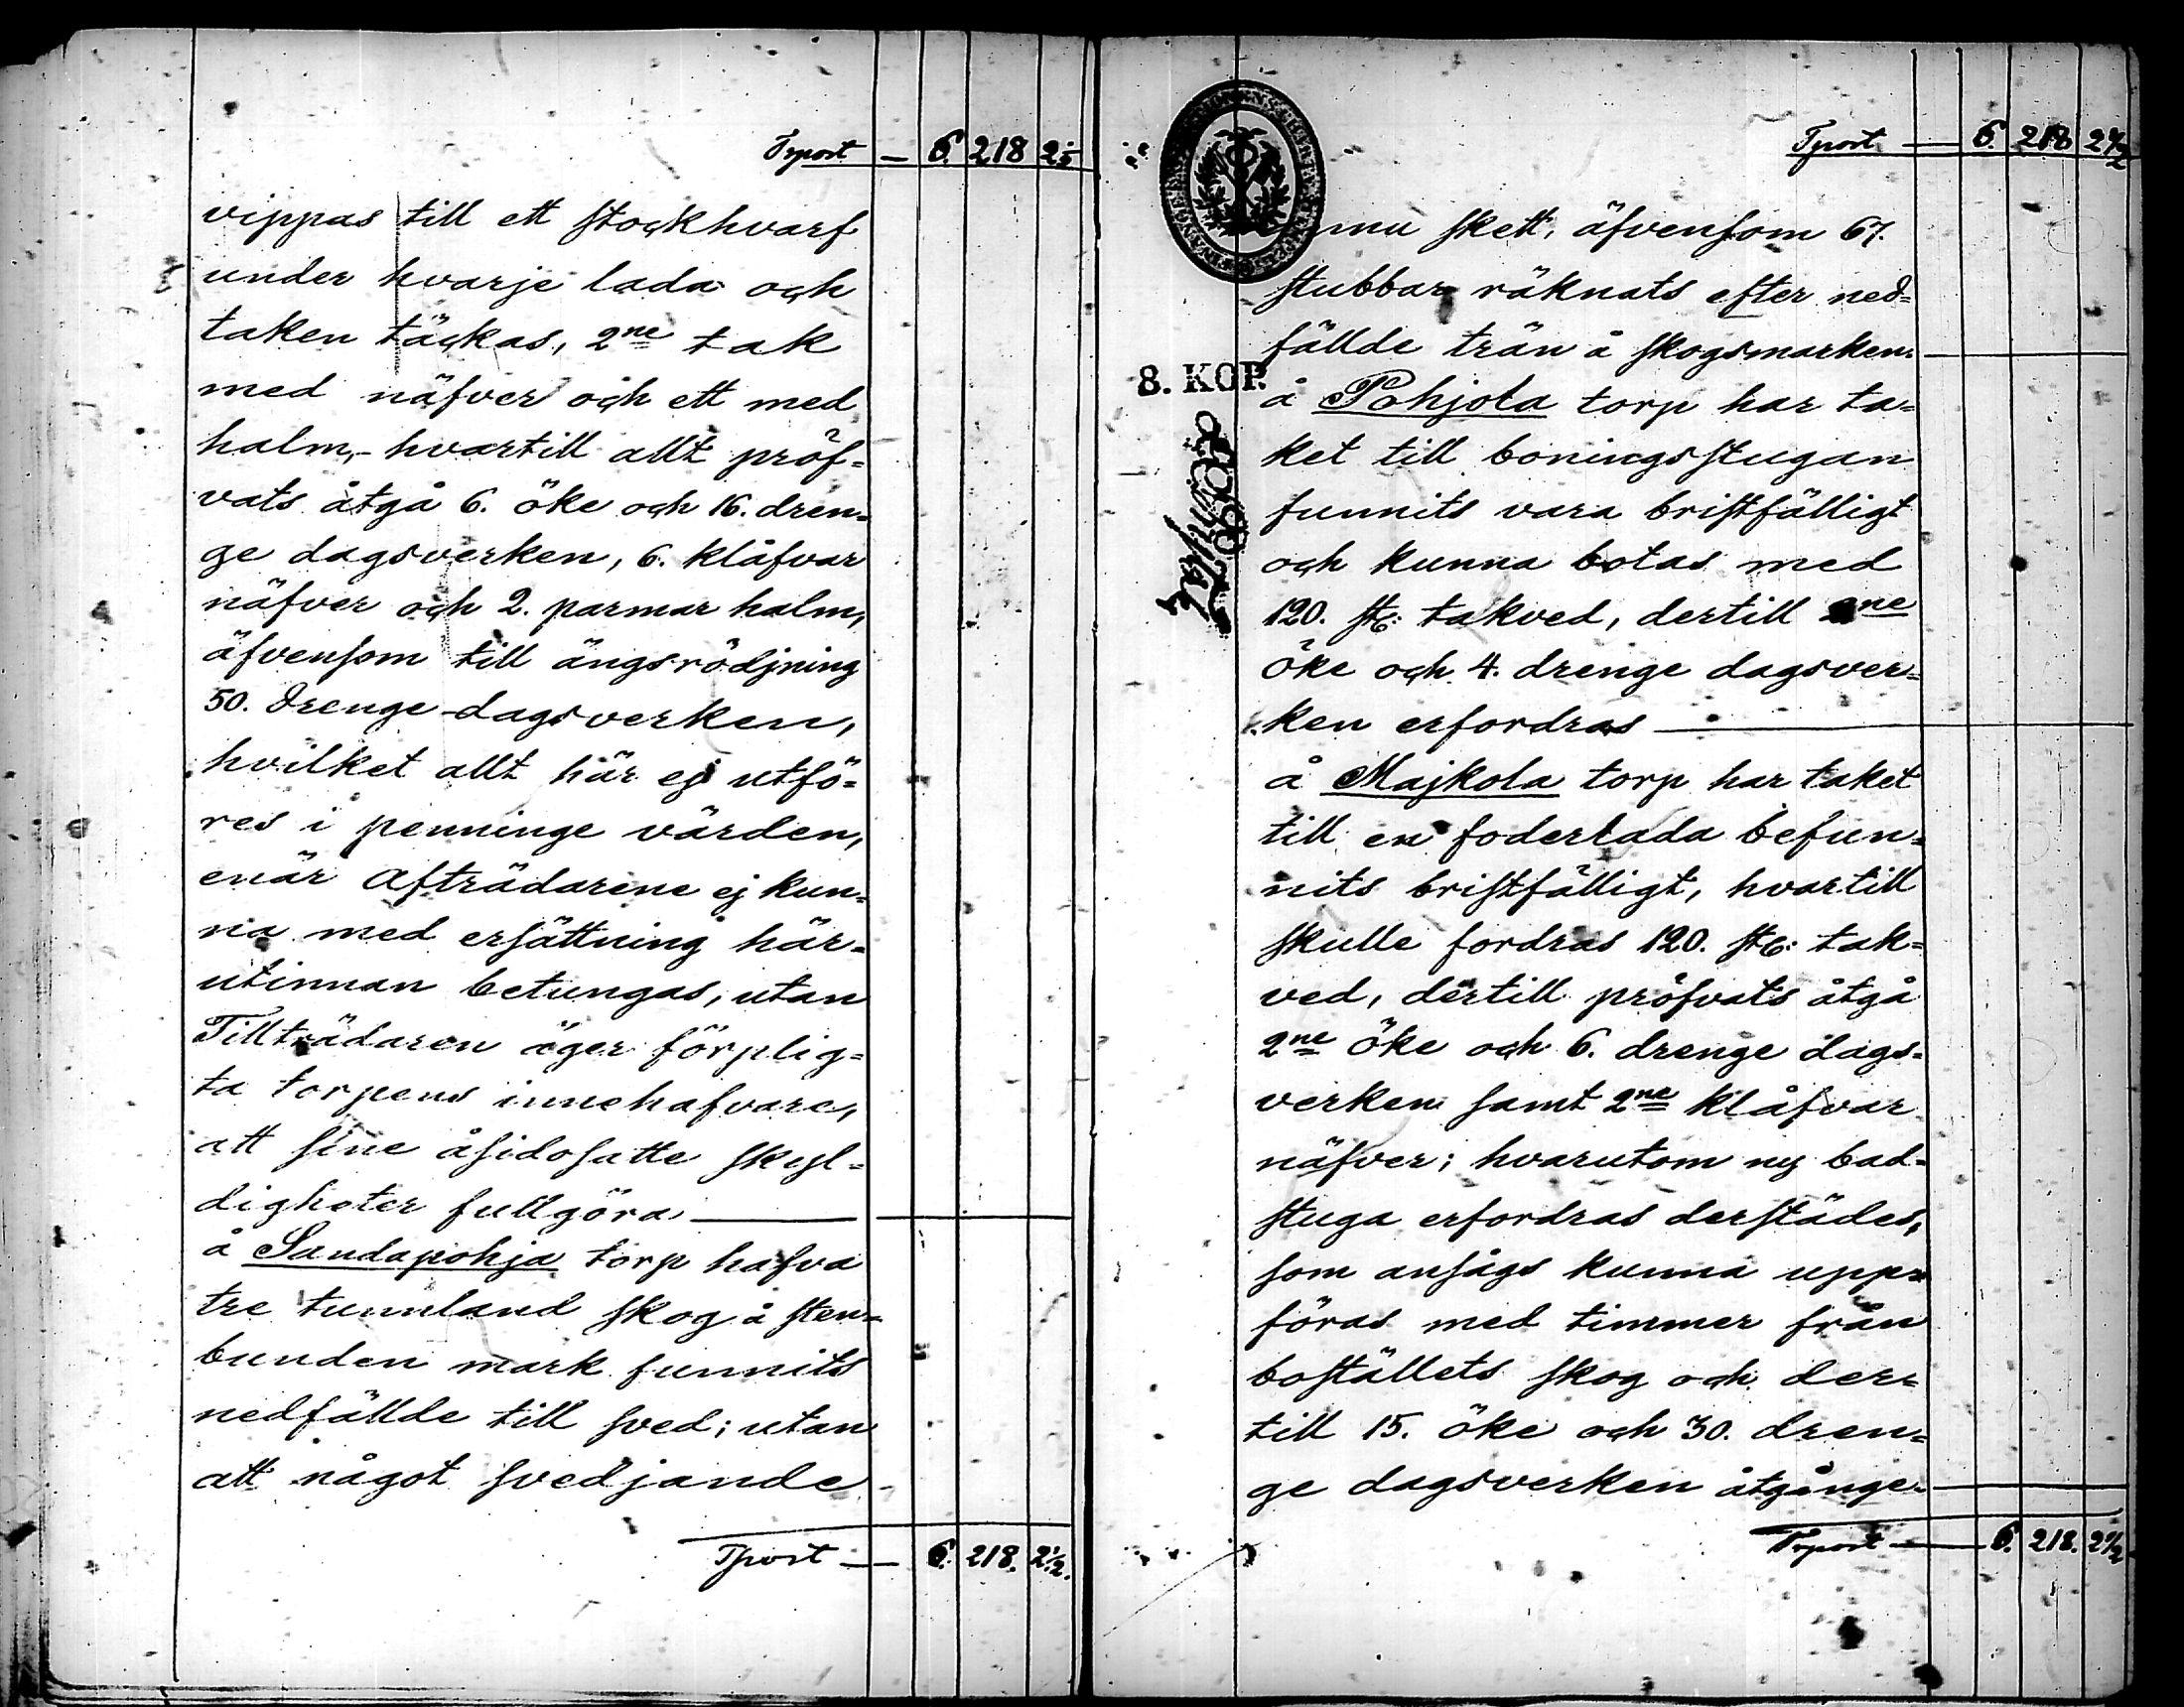 Trport — 6. 218 2½
vippas till ett stockhvarf
under hvarje lada och
taken täckas, 2ne tak
med näfver och ett med
halm,- hvartill allt pröf=
vats åtgå 6. öke och 16. dren=
ge dagsverken, 6. klåfvar
näfver och 2. parmar halm,
äfvensom till ängsrödjning
50. drenge-dagsverken,
hvilket allt här ej utfö=
res i penninge värden,
enär Afträdarene ej kun=
na med ersättning här=
utinnan betungas, utan
Tillträdaren äger förplig=
ta torpens innehafvare,
att sine åsidosatte skyl=
digheter fullgöra
å Sandapohja torp hafva
tre tunnland skog å sten=
bunden mark funnits
nedfällde till sved; utan
att något svedjande
Trport — 6. 218. 2½.
Trport — 6. 218 2½
ännu skett, äfvensom 67.
stubbar räknats efter ned=
fällde trän å skogsmarken
8. KOP.
å Pohjola torp har ta=
ket till boningsstugan
funnits vara bristfälligt
och kunna botas med
120. st: takved, dertill 2ne
öke och 4. drenge dagsver=
ken erfordras
å Majkola torp har taket
till en foderlada befun=
nits bristfälligt, hvartill
skulle fordras 120. st: tak=
ved, dertill pröfvats åtgå
2ne öke och 6. drenge dags=
verken samt 2ne klåfvar
näfver; hvarutom ny bad=
stuga erfordras derstädes,
som ansågs kunna upp=
föras med timmer från
boställets skog och der=
till 15. öke och 30. dren=
ge dagsverken åtgånge
Trport — 6. 218. 2½